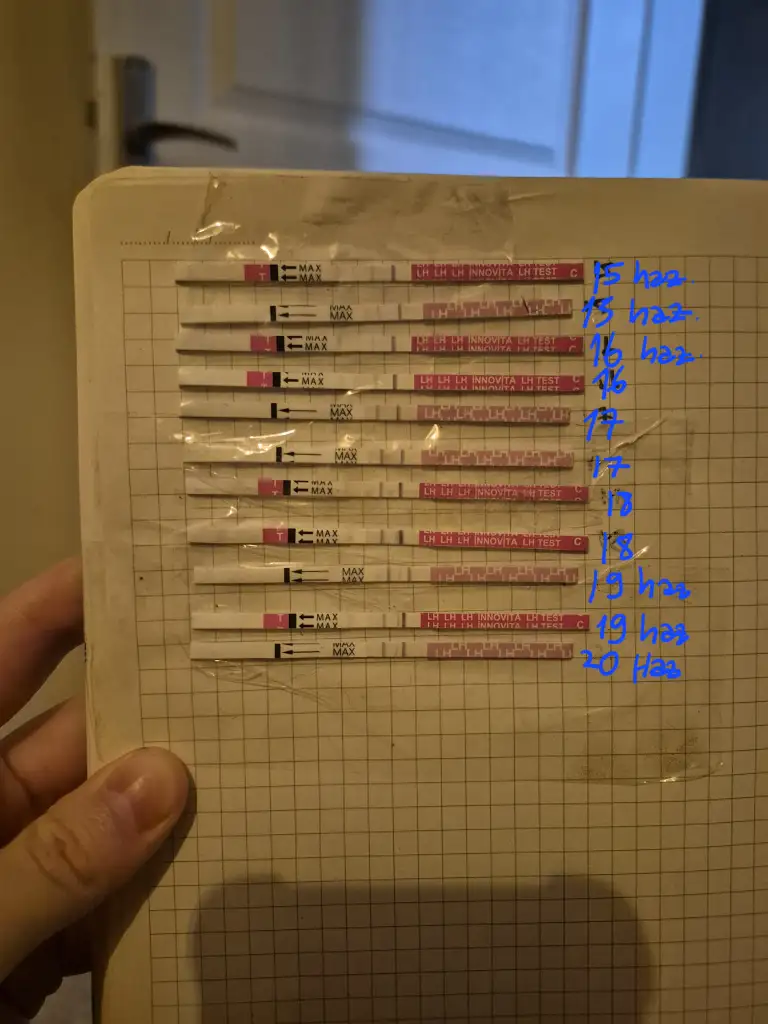 T MAX MAX LH LH LH INNOVITA LH TEST C 15 haz.
MAX MAX 15 haz.
T MAX MAX LH LH LH INNOVITA LH TEST C 16 haz.
T MAX LH LH LH INNOVITA LH TEST C 16
MAX 17
MAX 17
T MAX MAX LH LH LH INNOVITA LH TEST C 18
T MAX MAX LH LH LH INNOVITA LH TEST C 18
MAX MAX 19 haz
T MAX MAX LH LH LH INNOVITA LH TEST C 19 haz
MAX MAX 20 Haz